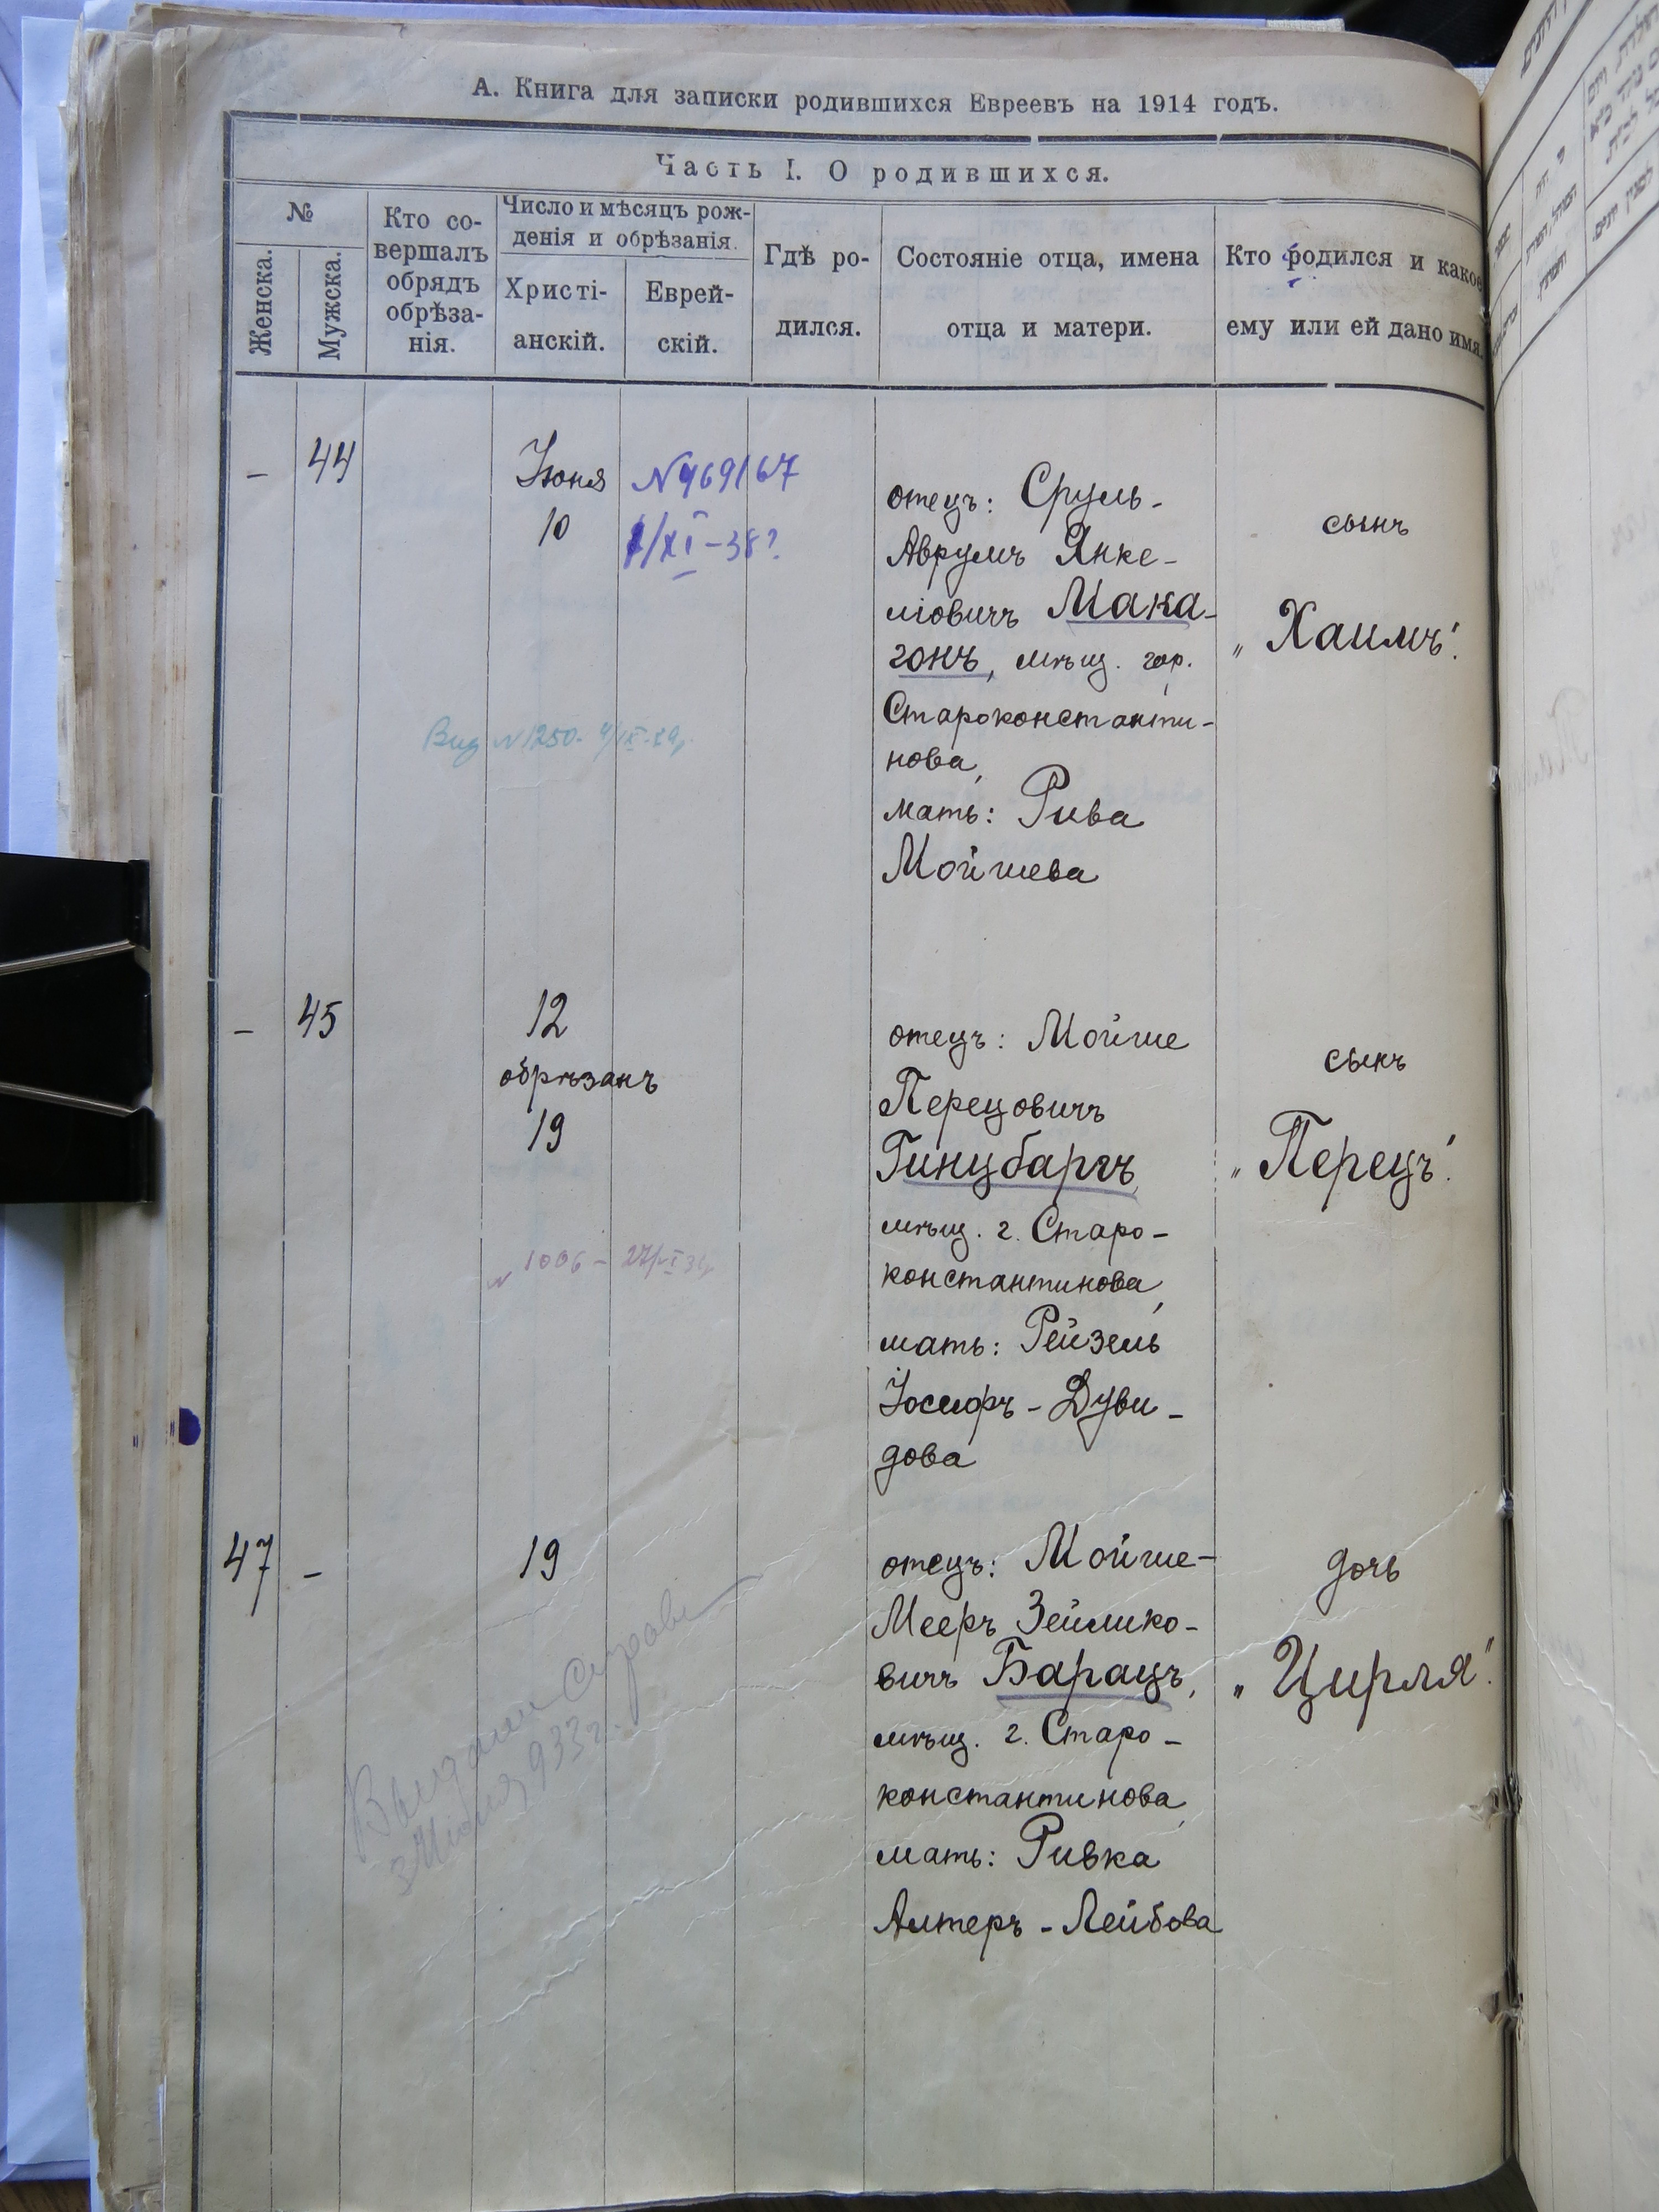 А. Книга для записки родившихся Евреевъ на 1914 годъ.
Часть I. О родившихся.
№
Женска.
Мужска.
Кто со-
вершалъ
обрядъ
обрѣза-
нія.
Число и мѣсяцъ рож-
денія и обрѣзанія.
Христі-
анскій.
Еврей-
скій.
Гдѣ ро-
дился.
Состояніе отца, имена
отца и матери.
Кто родился и какое
ему или ей дано имя.
– 44
Іюня
10
отецъ: Сруль-
Аврумъ Янке-
ліовичъ Мака-
гонъ, мѣщ. гор.
Староконстанти-
нова,
мать: Рива
Мойшева
сынъ
„Хаимъ".
– 45
12
обрѣзанъ
19
отецъ: Мойше
Перецовичъ
Гинцбаргъ,
мѣщ. г. Старо-
константинова,
мать: Рейзель
Іосифъ-Дуви-
дова
сынъ
„Перецъ".
47 –
19
отецъ: Мойше-
Мееръ Зейлико-
вичъ Барацъ,
мѣщ. г. Старо-
константинова,
мать: Ривка
Алтеръ-Лейбова
дочь
„Цирля".